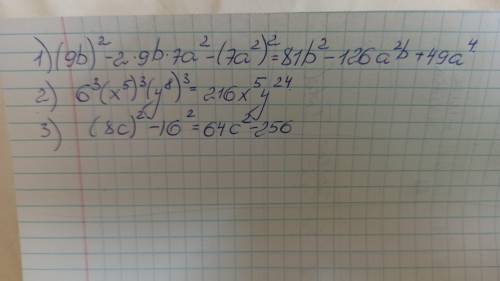 1) (9b)² - 2·9b·7a² - (7a²)² = 81b² - 126a²b + 49a⁴
2) 6³(x⁵)³(y⁸)³ = 216x⁵y²⁴
3) (8c)² - 16² = 64c² - 256